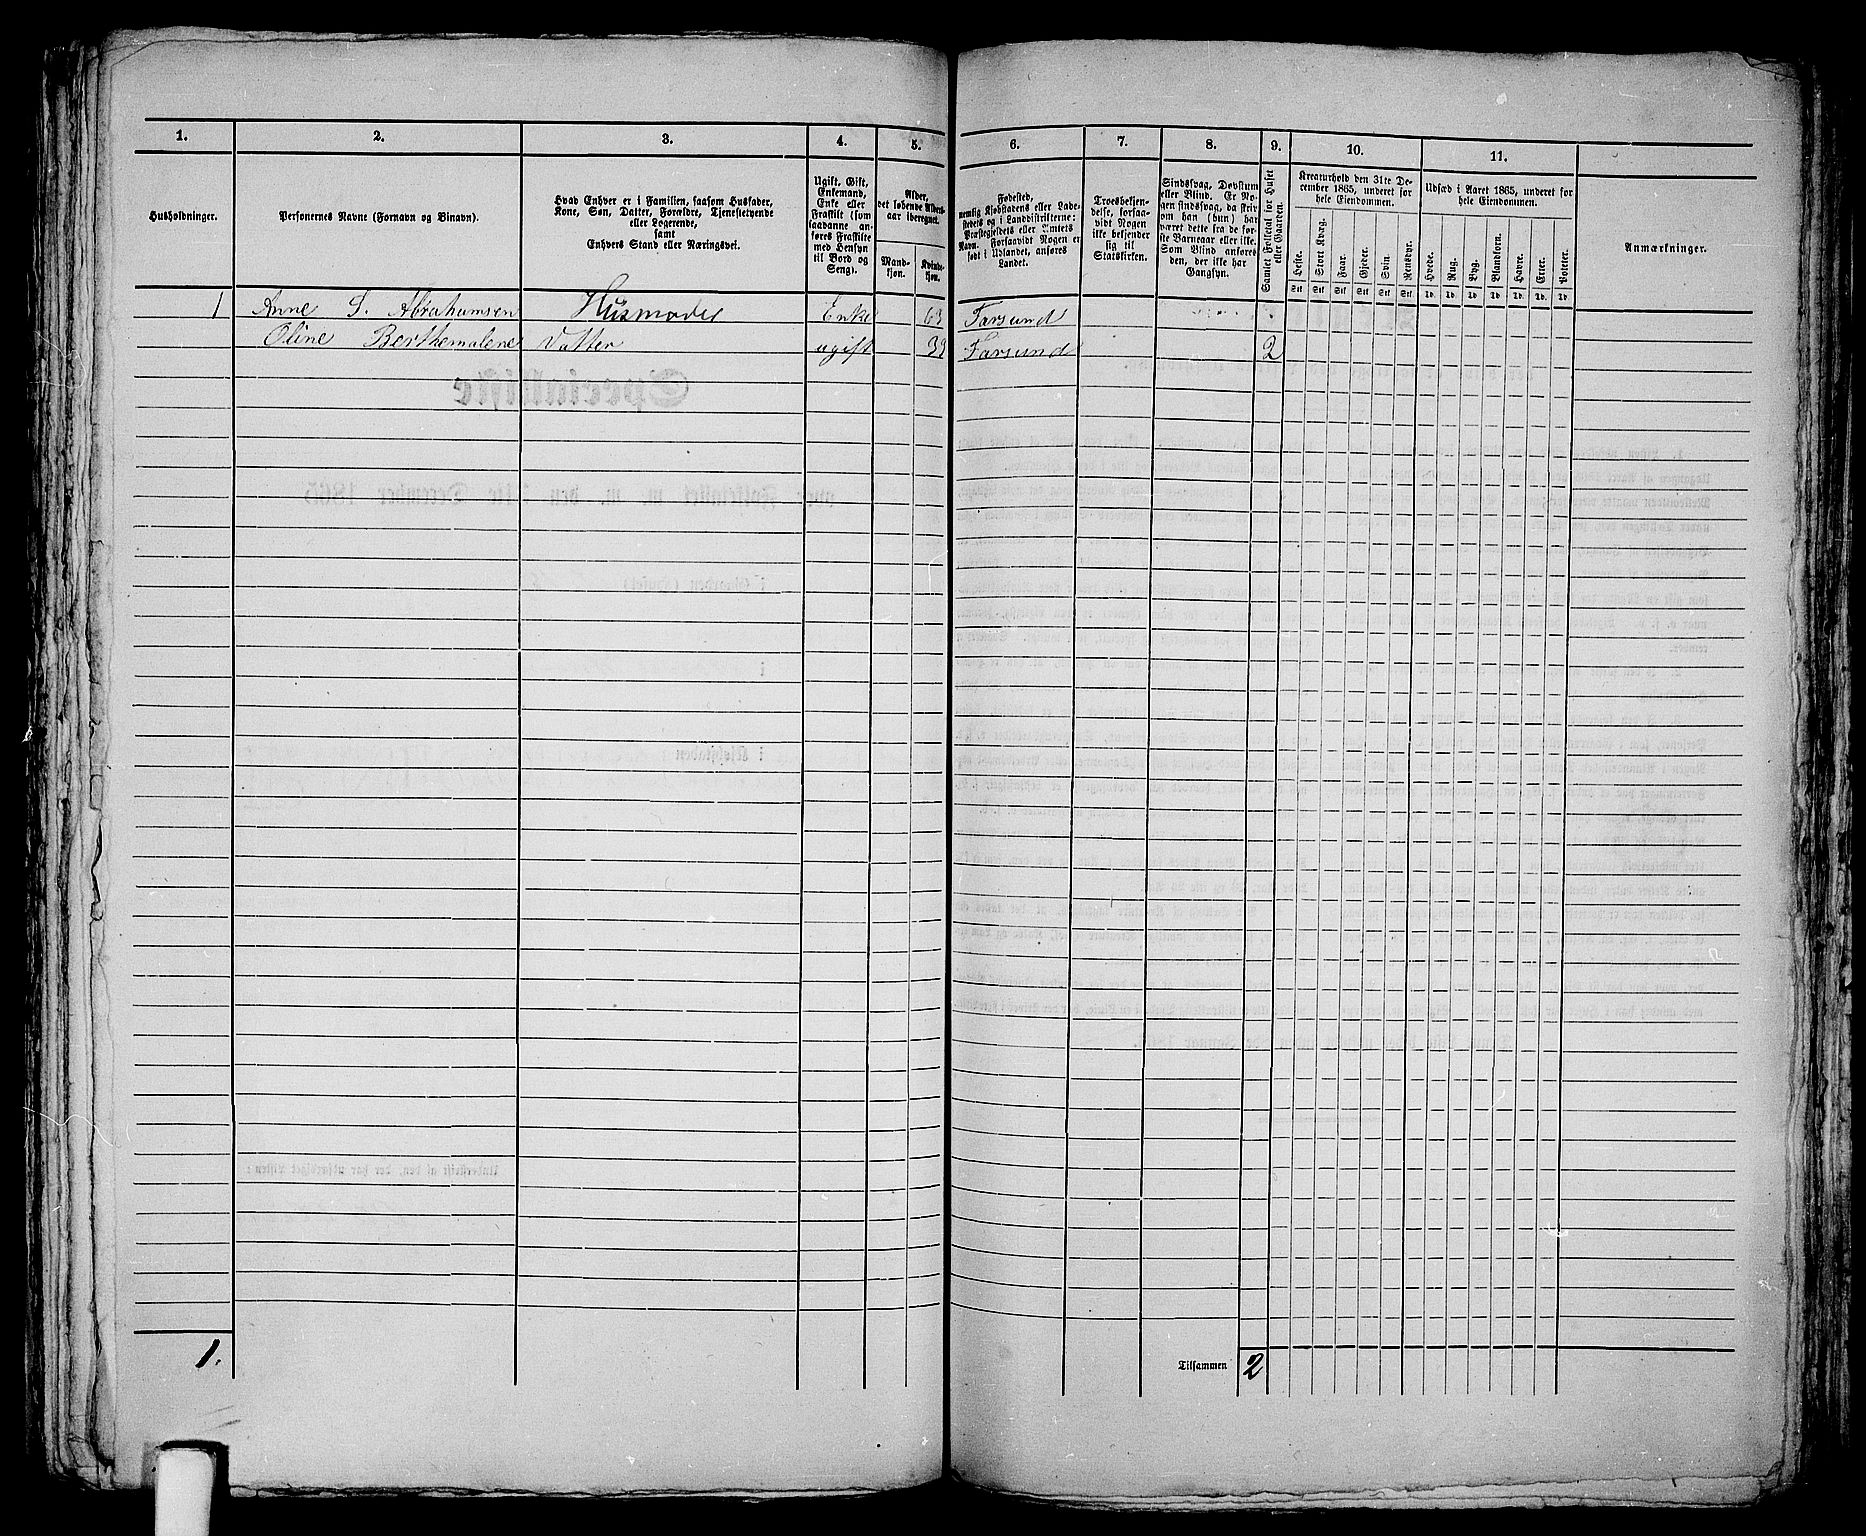 1. 2. 3. 4. 5. 6. 7. 8. 9. 10. 11.
Husholdninger.
Personernes Navne (Fornavn og Binavn).
Hvad Enhver er i Familien, saasom Husfader,
Kone, Søn, Datter, Forældre, Tjenestetyende
eller Logerende,
samt
Enhvers Stand eller Næringsvei.
Ugift, Gift,
Enkemand,
Enke eller
Fraskilt (som
saadanne an-
føres Fraskilte
med Hensyn
til Bord og
Seng).
Alder,
det løbende Alders-
aar iberegnet.
Mand-
kjøn.
Kvinde-
kjøn.
Fødested,
nemlig Kjøbstadens eller Lade-
stedets og i Landdistrikterne:
Præstegjeldets eller Amtets
Navn. Forsaavidt Nogen er
født i Udlandet, anføres
Landet.
Troesbekjen-
delse, forsaa-
vidt Nogen
ikke bekjender
sig til
Statskirken.
Sindssvag, Døvstum
eller Blind. Er No-
gen sindssvag, da skriv
om han (hun) har
været dette fra de før-
ste Barneaar eller ille.
Som Blind anføres
den, der ikke har
Gangsyn.
Samlet Folketal for Huset
eller Gaarden.
Kreaturhold den 31te De-
cember 1865, underet for
hele Eiendommen.
Heste. Stort Kvæg. Faar. Gjeder. Svin. Rensdyr.
Stk Stk Stk Stk Stk Stk
Udsæd i Aaret 1865, underet for
hele Eiendommen.
Hvede. Rug. Byg. Blandkorn. Havre. Erter. Poteter.
Td. Td. Td. Td. Td. Td. Td.
Anmærkninger.
1 Anne S. Abrahamsen Husmoder Enke 63 Farsund
Oline Berthemalene Datter ugift 39 Farsund 2
1. Tilsammen 2